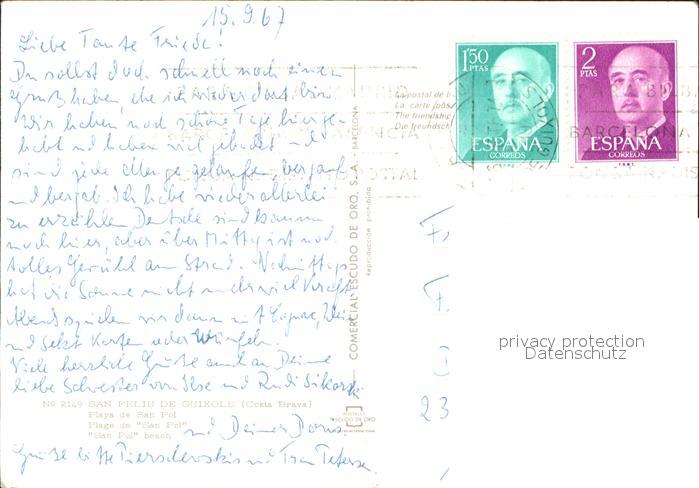 15.9.67
Liebe Tante Friede!
Du sollst doch schnell noch einen
Gruß haben, ehe ich wieder dort bin.
Wir haben noch schöne Tage hier ge-
habt und haben viel gebadet und
sind jede Menge gelaufen, bergauf
und bergab. Ich habe wieder allerlei
zu erzählen. Deutsche sind kaum
noch hier, aber über Mittag ist noch
tolles Gewühl am Strand. Nachmittags
hat die Sonne nicht mehr viel Kraft.
Abends spielen wir dann mit Cognac, Wein
und Sekt Karten oder Würfeln.
Viele herzliche Grüße auch an Deine
liebe Schwester von Ilse und Rudi Sikorski
und Deiner Doris.
Grüße bitte und Frau Petersen.
Nº 2149 SAN FELIU DE GUIXOLS (Costa Brava)
Playa de San Pol
Plage de "San Pol"
"San Pol" beach
COMERCIAL ESCUDO DE ORO, S.A. - BARCELONA
Reproducción prohibida
POSTALES
ESCUDO DE ORO
La postal de
La carte post
The friendship
Die freundsch
1'50
PTAS
ESPAÑA
CORREOS
2
PTAS
ESPAÑA
CORREOS
BARCELONA
23
privacy protection
Datenschutz